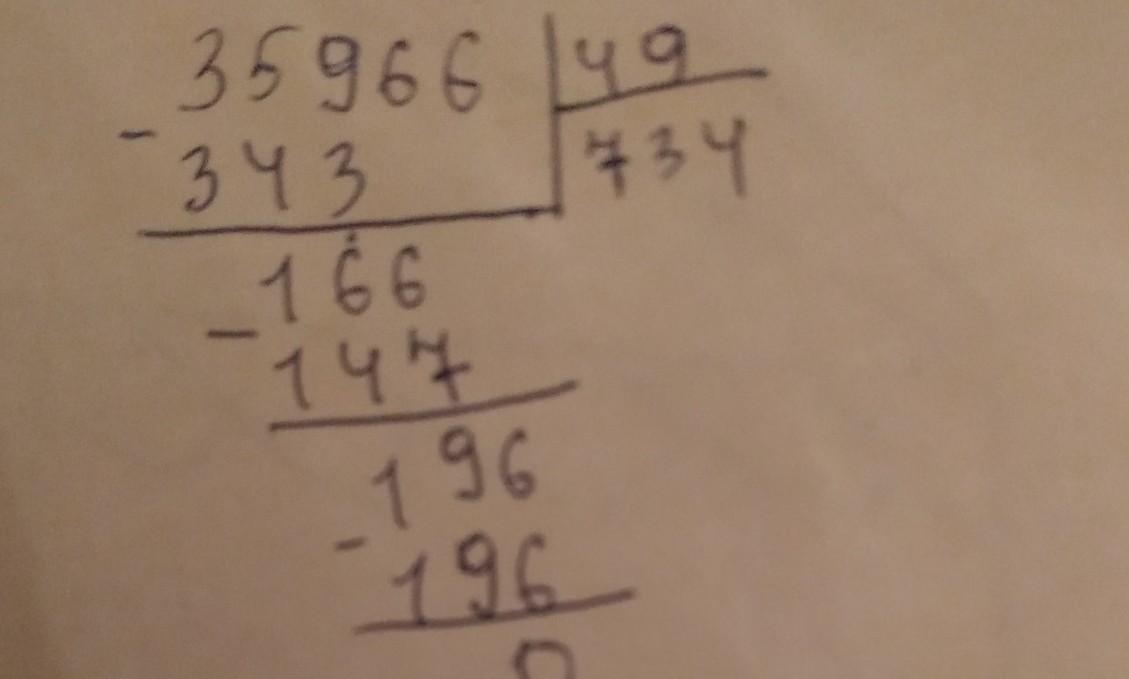 35966 | 49
- 343 | 734
166
- 147
196
- 196
0